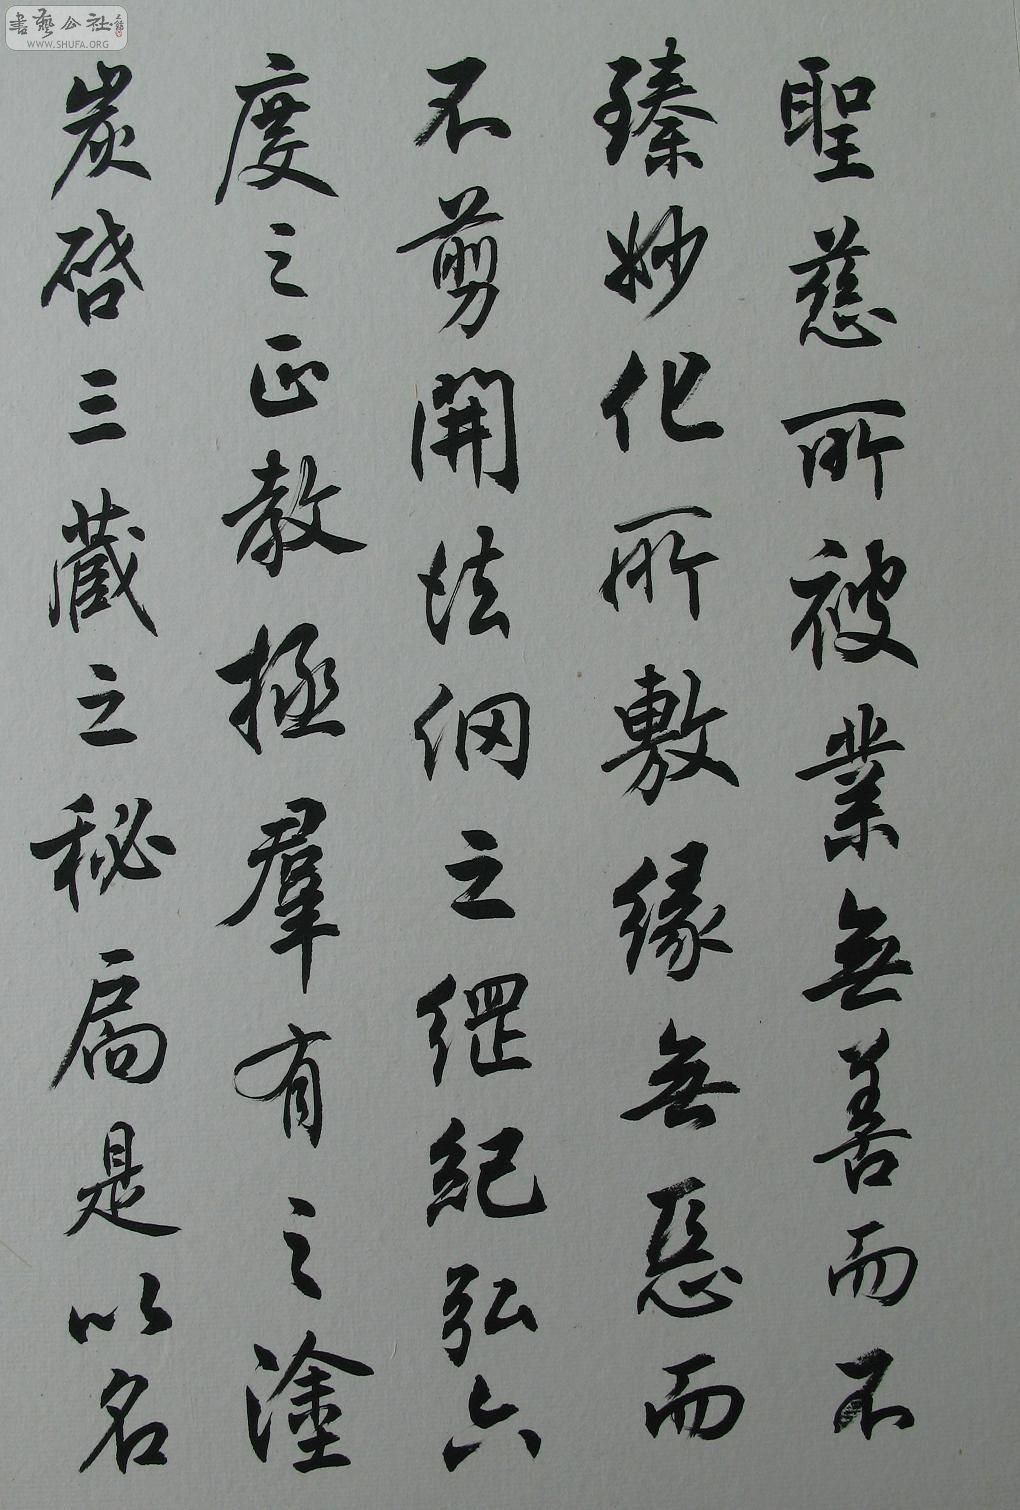 書藝公社
WWW.SHUFA.ORG
聖慈所被業無善而不
臻妙化所敷緣無惡而
不剪開法網之綱紀弘六
度之正教拯羣有之塗
炭啓三藏之秘扃是以名